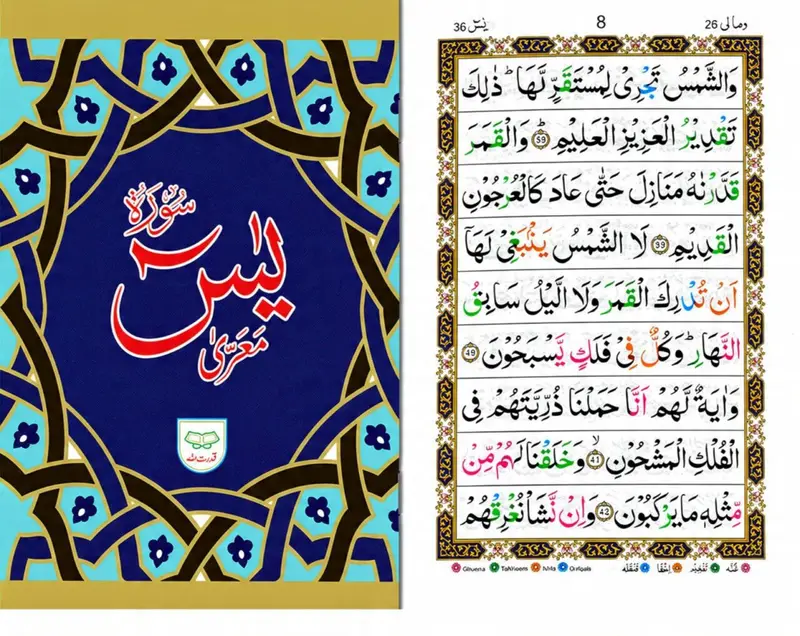 سُوْرَةُ
يٰسٓ
مَعَرّٰى
قدرت اللہ
يٰسٓ 36
8
ومالى 26
وَالشَّمْسُ تَجْرِىْ لِمُسْتَقَرٍّ لَّهَا ؕ ذٰلِكَ
تَقْدِيْرُ الْعَزِيْزِ الْعَلِيْمِ ؕ وَالْقَمَرَ
قَدَّرْنٰهُ مَنَازِلَ حَتّٰى عَادَ كَالْعُرْجُوْنِ
الْقَدِيْمِ لَا الشَّمْسُ يَنْۢبَغِىْ لَهَاۤ
اَنْ تُدْرِكَ الْقَمَرَ وَلَا الَّيْلُ سَابِقُ
النَّهَارِ ؕ وَكُلٌّ فِىْ فَلَكٍ يَّسْبَحُوْنَ 49
وَاٰيَةٌ لَّهُمْ اَنَّا حَمَلْنَا ذُرِّيَّتَهُمْ فِى
الْفُلْكِ الْمَشْحُوْنِ ۙ 41 وَخَلَقْنَا لَهُمْ مِّنْ
مِّثْلِهٖ مَا يَرْكَبُوْنَ 42 وَاِنْ نَّشَاْ نُغْرِقْهُمْ
غُنّه تَفْخِيْم اِخْفَا قَلْقَلَه